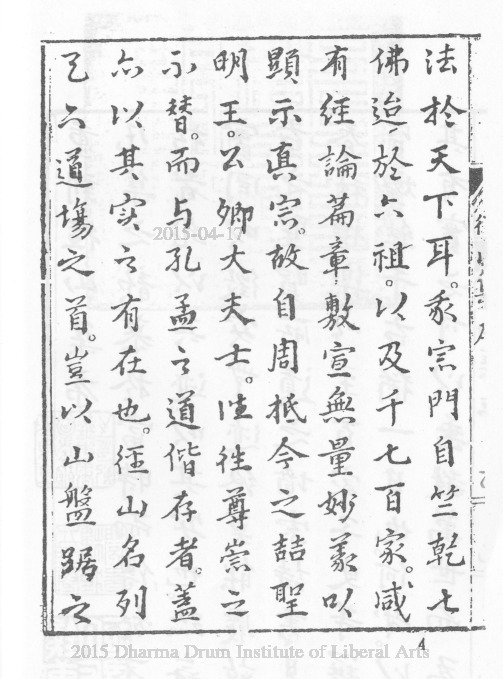 法於天下耳。我宗門自竺乾七
佛迨於六祖。以及千七百家。咸
有經論篇章。敷宣無量妙義。以
顯示真宗。故自周抵今之喆聖
明王。公卿大夫士。往往尊崇之
不替。而与孔孟之道偕存者。蓋
亦以其实之有在也。徑山名列
天下道場之首。豈以山盤踞之
2015-04-17
4
2015 Dharma Drum Institute of Liberal Arts